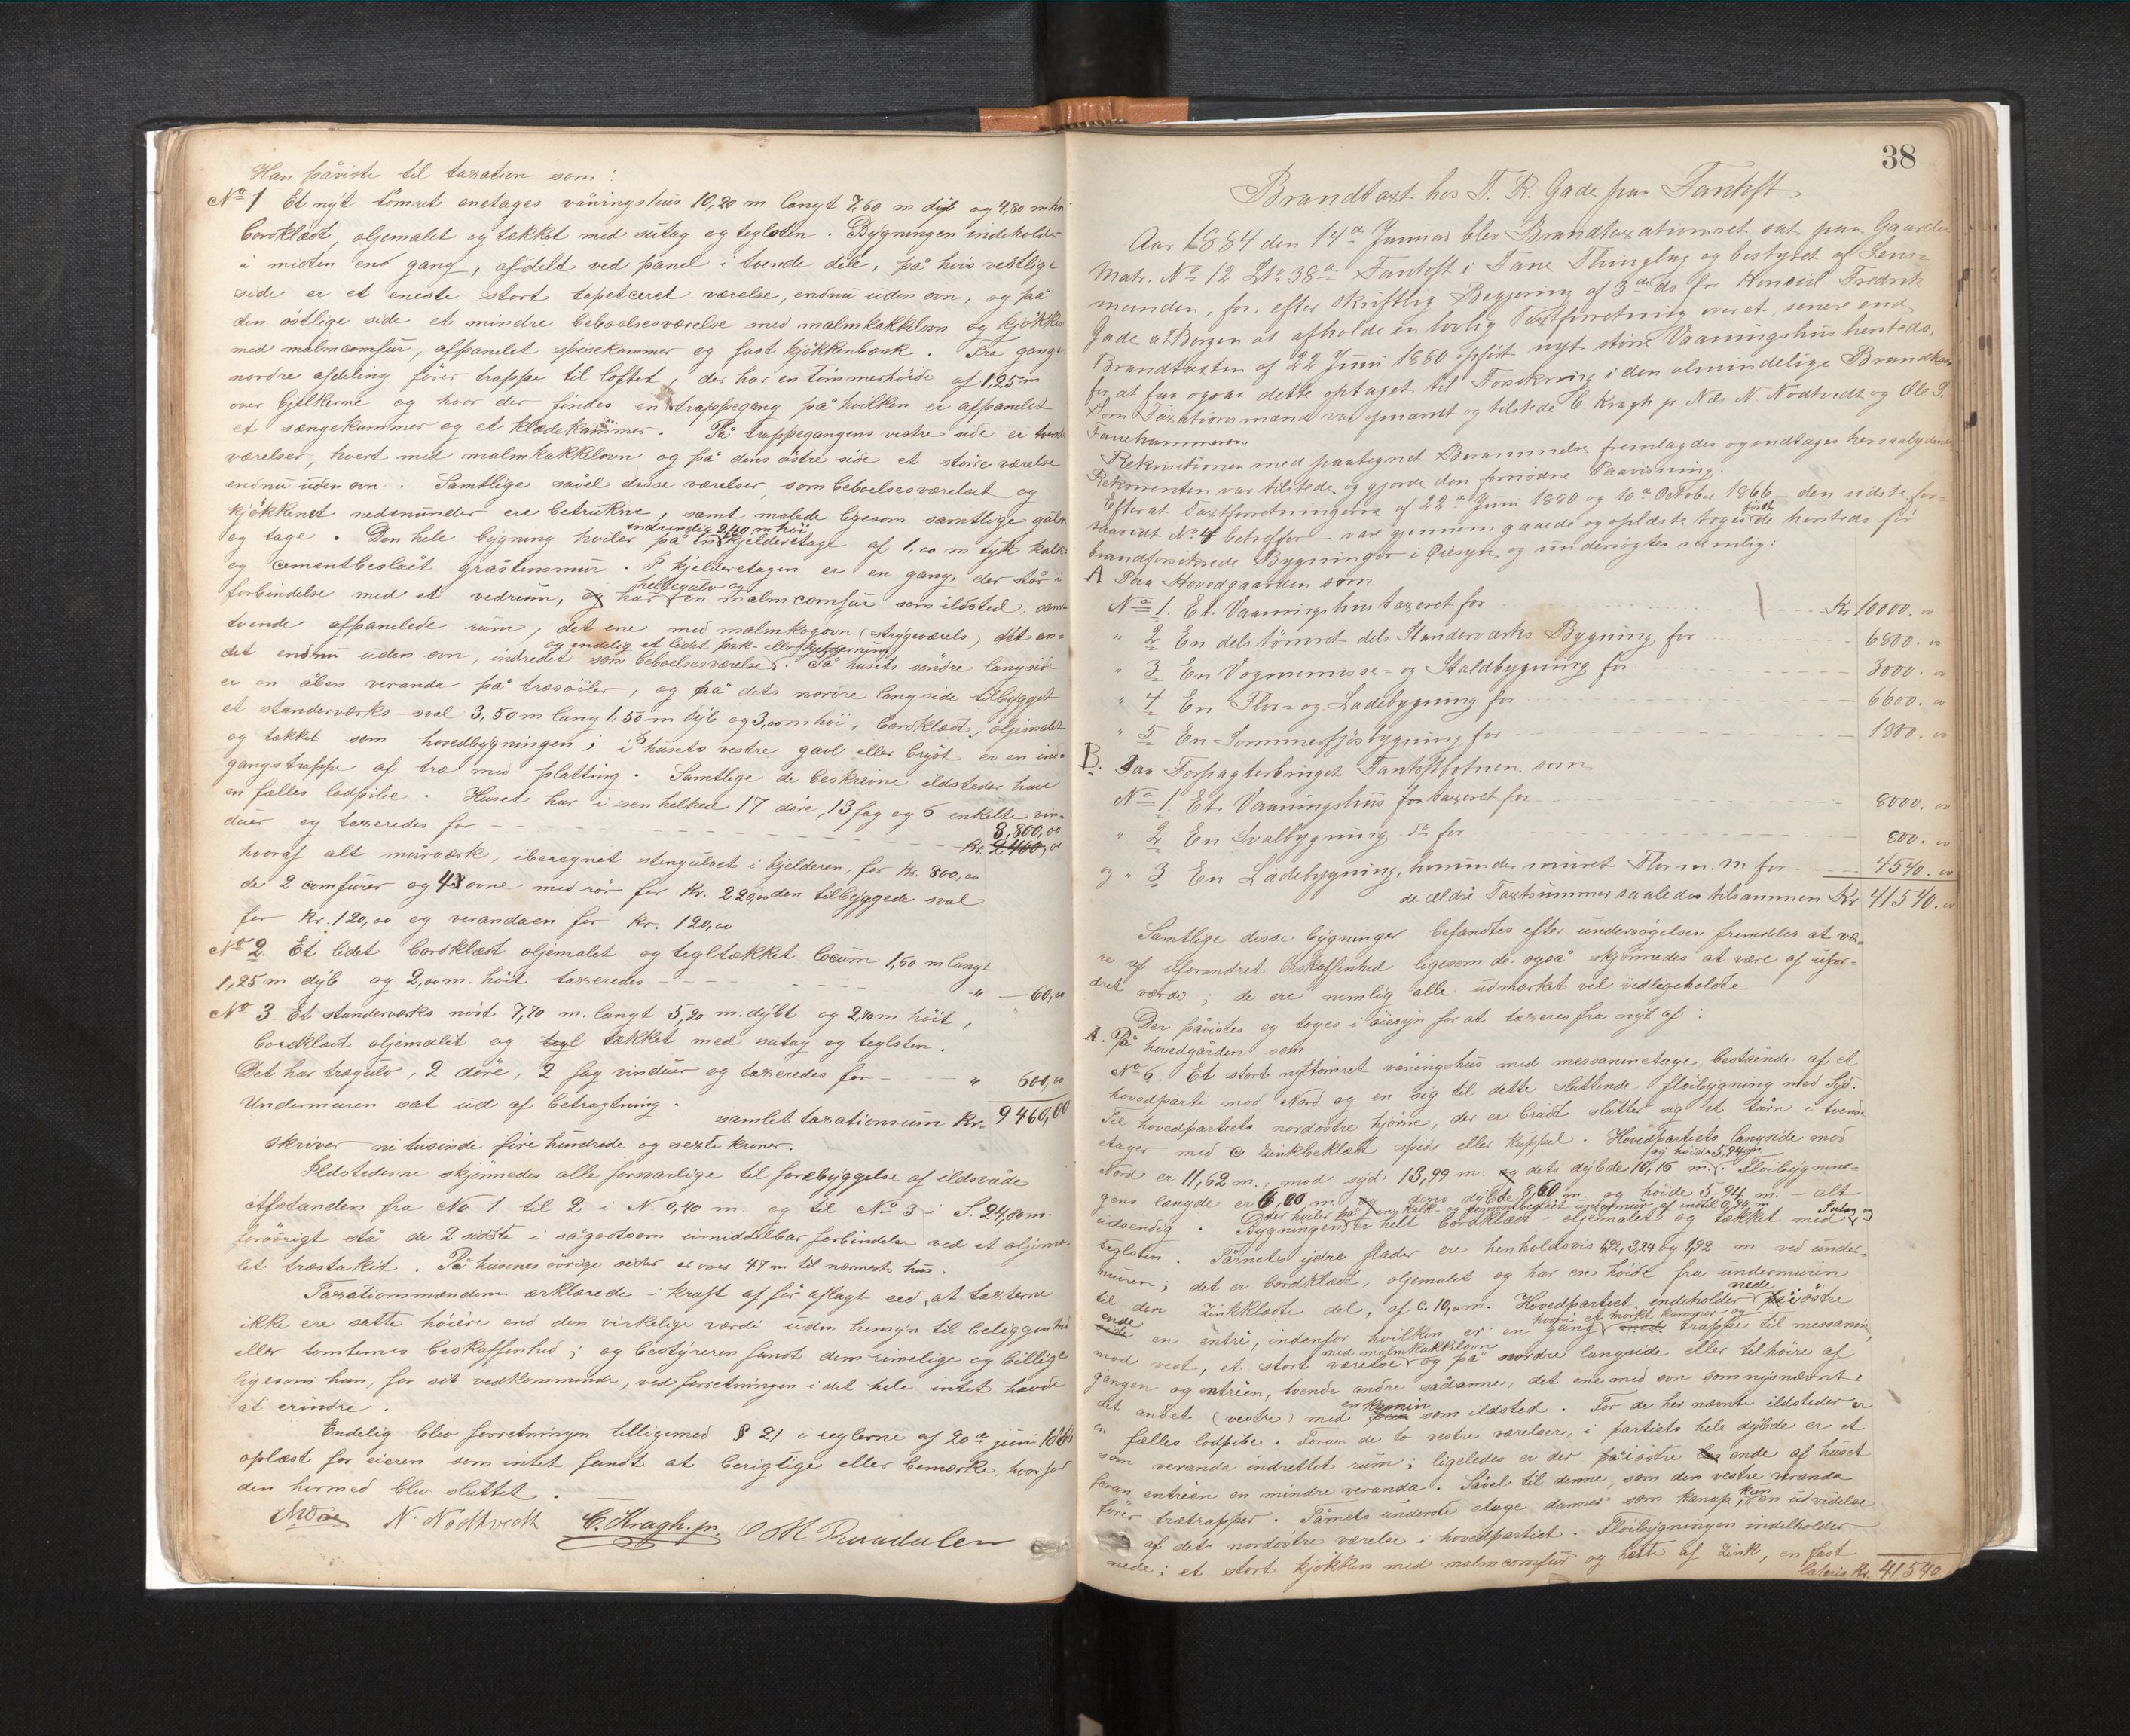 Han påviste til taxation som:
No 1 Et nyt tömret enetages våningshus 10,20 m langt 7,60 m dyb og 4,80 m höi
bordklædt, oljemalet og tækket med sutag og teglsten. Bygningen indeholder
i midten end gang, afdelt ved panel i tvende dele, på hvis vestlige
side er et eneste stort tapetceret værelse, endnu uden ovn, og på
den östlige side et mindre beboelsesværelse med malmkakkelovn og kjökken
med malmcomfur, afpanelet spisekammer og fast kjökkenbænk. Fra gangens
nordre afdeling förer trappe til loftet, der har en tömmerhöide af 1,25 m
over bjelkerne og hvor der findes en trappegang på hvilken er afpanelet
et sængekammer og et klædekammer. På trappegangens vestre side er tvende
værelser, hvert med malmkakkelovn og på dens östre side et större værelse
endnu uden ovn. Samtlige såvel disse værelser som beboelsesværelset og
kjökkenet nedenunder ere betrukne, samt malede ligesom samtlige gulve
indvendig 2,40 m höi
og tage. Den hele bygning hviler på en kjelderetage af 1,00 m tyk kalk-
og cementbeslået gråstensmur. I kjelderetagen er en gang, der står i
hellegulv og
forbindelse med et vedrum, og har en malmcomfur som ildsted, samt
tvende afpanelede rum, det ene med malmkogovn (strygeværelse) det an-
og endelig et lidet pak- eller skylderum
det endnu uden ovn, indredet som beboelsesværelse. På husets söndre langside
er en åben veranda på træsöiler, og på dets nordre langside tilbygget
et standerværks sval 3,50 m lang 1,50 m dyb og 3,00 m höi, bordklædt, oljemalet
og tækket som hovedbygningen; i husets vestre gavl eller bryst er en ind-
gangstrappe af træ med platting. Samtlige de beskrevne ildsteder have
en fælles lodpibe. Huset har i sen helhed 17 döre, 13 fag og 6 enkelte vin-
8,800,00
duer og taxeredes for Kr. 2400,00
hvoraf alt murværk, iberegnet stengulvet i kjelderen, for Kr. 800,00
de 2 comfurer og 4 ovne med rör for Kr. 220,00 den tilbyggede sval
for Kr. 120,00 og verandaen for Kr. 120,00
No 2. Et lidet bordklædt oljemalet og tegltækket locum 1,50 m langt
1,25 m dyb og 2,00 m. höit taxeredes " 60,00
No 3. Et standerværks nöst 7,70 m. langt 5,20 m. dybt og 2,40 m. höit,
bordklædt oljemalet og tegl tækket med sutag og teglsten.
Det har trægulv, 2 döre, 2 fag vinduer og taxeredes for " 600,00
Undermuren sat ud af betragtning.
samlet taxationsum Kr. 9460,00
skriver ni tusinde fire hundrede og sexti kroner.
Ildstederne skjönnedes alle forsvarlige til forebyggelse af ildsvåde
Afstanden fra No 1. til 2 i N. 0,40 m. og til No 3 i S. 24,80 m.
forövrigt stå de 2 sidste i sågodtsom umiddelbar forbindelse ved et oljema-
let træstakit. På husenes övrige sider er over 47 m til nærmeste hus.
Taxationsmændene erklærede i kraft af för aflagt eed, at taxterne
ikke ere satte höiere end den virkelige værdi uden hensyn til beliggenhed
eller tomternes beskaffenhed; og bestyreren fandt dem rimelige og billige
ligesom han, for sit vedkommende, ved forretningen i det hele intet havde
at erindre.
Endelig blev forretningen tilligemed § 21 i reglerne af 20de juni 1846
oplæst for eieren som intet fandt at berigtige eller bemærke, hvorfor
den hermed blev sluttet.
N. Nödtvedt C. Kragh. pr.
38
Brandtaxt hos F. R. Gade paa Fantoft
Aar 1884 den 14de Januar blev Brandtaxationsret sat paa Gaarden
Matr. No 12 Lno 38a Fantoft i Fane Thinglag og bestyret af Lens-
manden, for, efter skriftlig Begjering af 3die ds fra Konsul Fredrik
Gade at Bergen at afholde en lovlig Taxtforretning over et, senere end
Brandtaxten af 22 Juni 1880 opfört nyt större Vaaningshus hersteds,
for at faa ogsaa dette optaget til Forsikring i den almindelige Brandkasse
Som Taxationsmænd var opnævnt og tilstede C. Kragh p. Næs N. Nödtvedt og Ole S.
Fanehammeren
Rekvisitionen med paategnet Berammelse fremlagdes og indtages her saalydende
Rekvirenten var tilstede og gjorde den fornödne Paavisning.
Efterat Taxtforretningerne af 22de Juni 1880 og 10de October 1866 - den sidste for-
först
saavidt No 4 betreffer - var gjennemgaaede og oplæste toges de hersteds för
brandforsikrede Bygninger i Öiesyn og undersögtes nemlig:
A Paa Hovedgaarden som
No 1. Et Vaaningshus taxeret for Kr 10000.00
" 2 En dels tömret dels Standerværks Bygning for 6800.00
" 3 En Vognremisse- og Staldbygning for 3000.00
" 4 En Flor- og Ladebygning for 6600.00
" 5 En Sommerfjösbygning for 1800.00
B. Paa Forpagterbruget Fantoftbotnen som
No 1. Et Vaaningshus for taxeret for 8000.00
" 2 En Svalbygning do for 800.00
og " 3 En Ladebygning, herunder muret Flor m. m for 4540.00
de ældre Taxtsummer saaledes tilsammen Kr 41540.00
Samtlige disse bygninger befandtes efter undersögelsen fremdeles at væ-
re af uforandret beskaffenhed ligesom de også skjönnedes at være af ufor-
dret værdi; de ere nemlig alle udmærket vel vedligeholdte
Der påvistes og toges i öiesyn for at taxeres fra nyt af:
A. På hovedgården som
No 6. Et stort nyt tömret våningshus med messaninetage, bestående af et
hovedparti mod Nord og en sig til dette sluttende flöibygning mod Syd.
Til hovedpartiets nordöstre hjörne, der er brudt slutter sig et tårn i tvende
etager med zinkbeklædt spids eller kuppel. Hovedpartiets langside mod
og höide 5,94 m
Nord er 11,62 m., mod syd 13,99 m. og dets dybde 10,16 m. Flöibygnin-
gens længde er 6,00 m og dens dybde 8,60 m og höide 5,94 m. - alt
der hviler på en kalk- og cementbeslået undermur af indtil 0,94 m Sutag og
udvendig. Bygningen er helt bordklædt oljemalet og tækket med
teglsten. Tårnets ydre flader ere henholdsvis 1,92, 3,24 og 1,92 m ved under-
muren; det er bordklædt, oljemalet og har en höide fra undermuren
nede
til den zinkklædte del, af c. 10,00 m. Hovedpartiet indeholder i östre
ende hvori et mörkt kammer og
side en entré, indenfor hvilken er en gang med trappe til messanin,
med malmkakkelovn
mod vest, et stort værelse og på nordre langside eller tilhöire af
gangen og entréen, tvende andre sådanne, det ene med ovn som nysnævnte
en kamin
det andet (vestre) med som ildsted. For de her nævnte ildsteder er
en fælles lodpibe. Foran de to vestre værelser, i partiets hele dybde er et
som veranda indrettet rum; ligeledes er der på i östre ende af huset
foran entréen en mindre veranda. Såvel til denne, som den vestre veranda
kun
förer trætrapper. Tårnets underste etage danner som karnap, en udvidelse
af det nordöstre værelse i hovedpartiet. Flöibygningen indeholder
nede: et stort kjökken med malmcomfur og hætte af zink, en fast
Lateris Kr. 41540